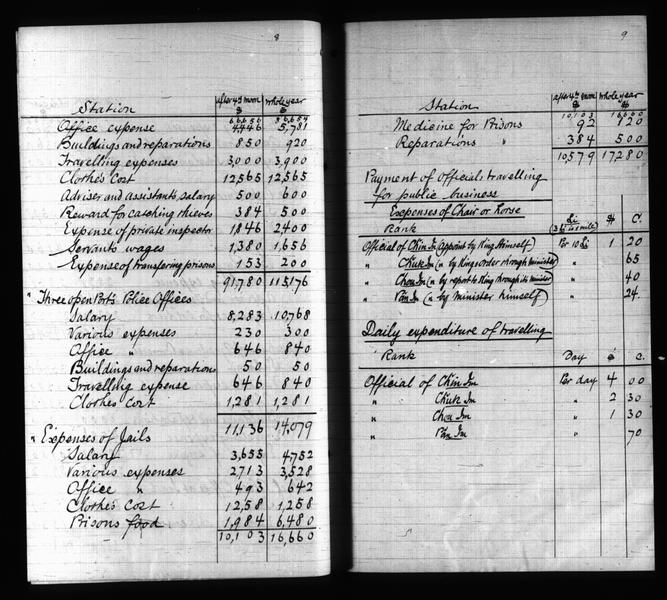 8
Station after 4th moon $ whole year $
66656 86684
Office expense 4446 5,781
Buildings and reparations 850 920
Travelling expenses 3,000 3,900
Clothe's Cost 12,565 12,565
Adviser and assistants, salary 500 600
Reward for catching thieves 384 500
Expense of private inspector 1,846 2400
Servants wages 1,380 1,656
Expense of transfering prisons 153 200
91,780 115,176
" Three open Ports Police Offices
Salary 8,283 10,768
Various expenses 230 300
Office " 646 840
Buildings and reparations 50 50
Travelling expense 646 840
Clothes Cost 1,281 1,281
11,136 14,079
" Expenses of Jails
Salary 3,655 4752
Various expenses 2713 3,528
Office " 493 642
Clothe's Cost 1,258 1,258
Prisons food 1,984 6,480
10,103 16,660
9
Station after 4th moon $ whole year $
10,103 16660
Medicine for Prisons 92 120
Reparations " 384 500
10,579 17,280
Payment of officials travelling
for public business
Expenses of Chair or horse
Rank Li (3 Li is 1 mile) $ C.
Official of Chin Im (Appoint by King himself) Per 10 Li 1 20
" Chuk Im (" by Kings order through minister) " 65
" Chou Im (" by report to King through its minister) " 40
" Pan Im (" by minister himself) " 24.
Daily expenditure of travelling
Rank Day $ C.
Official of Chin Im Per day 4 00
" Chuk Im " 2 30
" Chou Im " 1 30
" Pan Im " 70